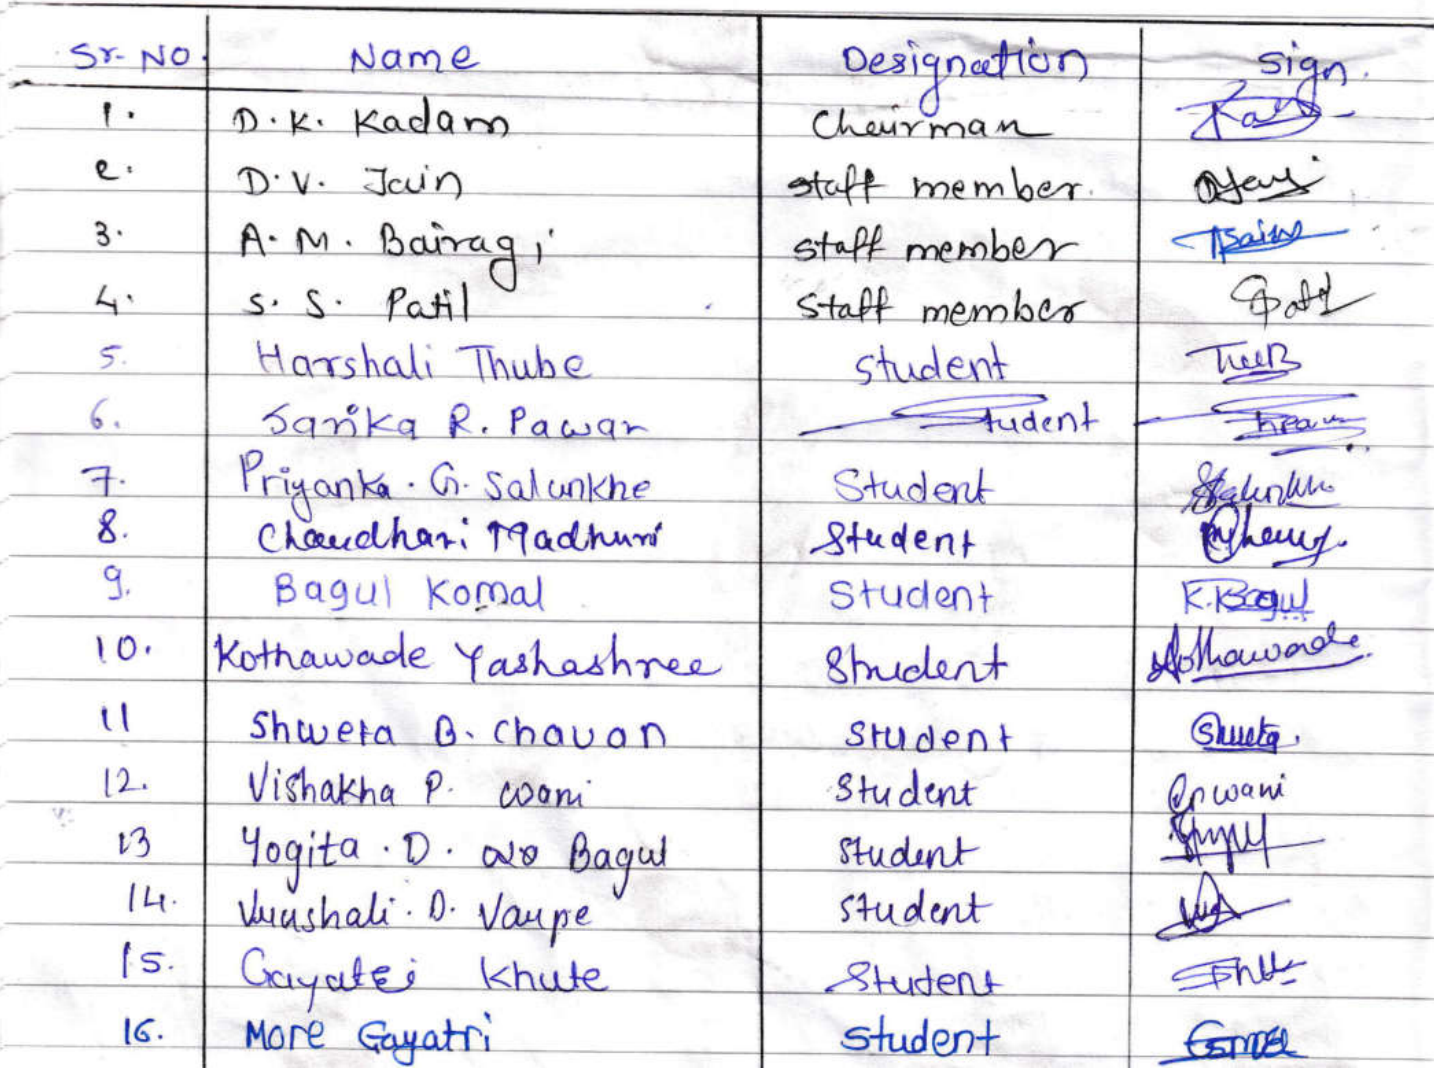 Sr. No. Name Designation Sign.
1. D. K. Kadam Chairman
2. D. V. Jain staff member.
3. A. M. Bairagi staff member
4. S. S. Patil Staff member
5. Harshali Thube Student
6. Sarika R. Pawar Student
7. Priyanka. G. Salunkhe Student
8. Chaudhari Madhuri Student
9. Bagul Komal Student K.Bagul
10. Kothawade Yashashree Student Kothawade
11 Shweta B. Chavan Student Shweta.
12. Vishakha P. Wani Student wani
13 Yogita. D. Bagul Student
14. Vaishali. D. Student
15. Gayatri Khute Student
16. More Gayatri Student